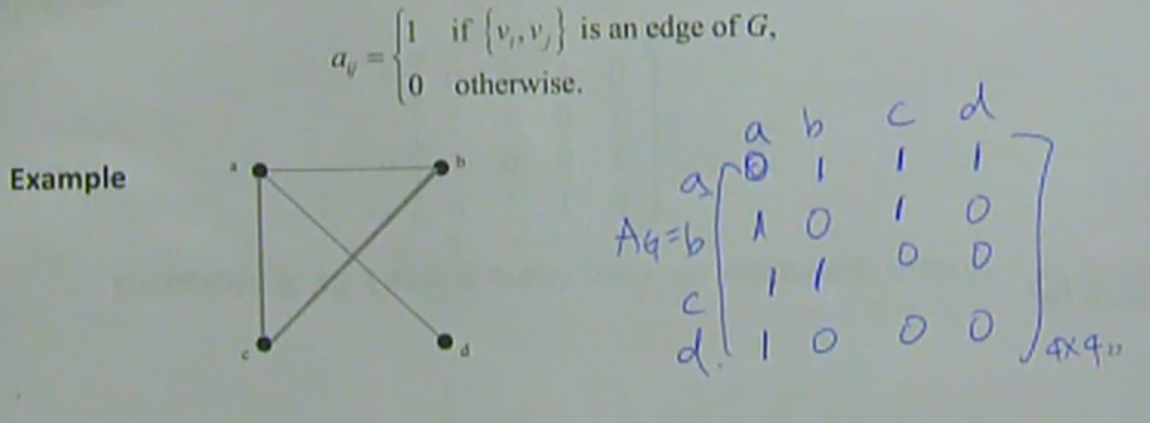 a_ij = { 1 if {v_i, v_j} is an edge of G,
0 otherwise.
Example
a b
c d
a b c d
a 0 1 1 1
A_G = b 1 0 1 0
c 1 1 0 0
d. 1 0 0 0 4×4